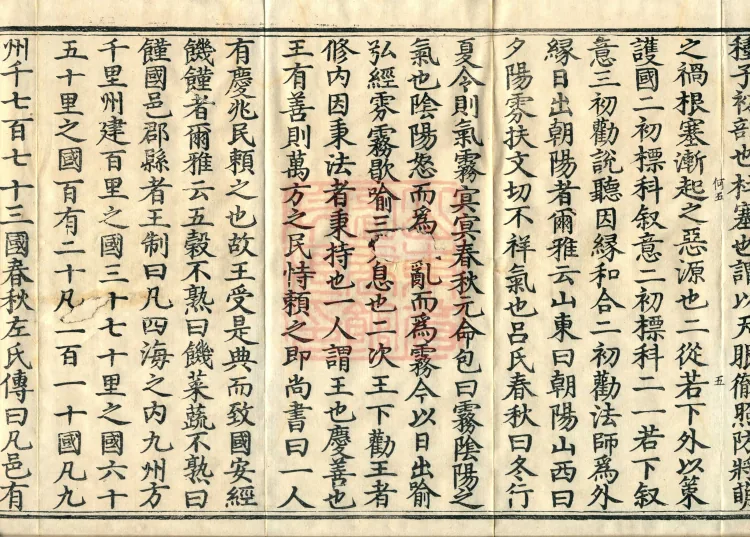 種子初剖也杜塞也謂以天眼徹照防將萌
何五
五
之禍根塞漸起之惡源也二從若下外以策
護國二初標科叙意二初標科二一若下叙
意三初勸說聽因緣和合二初勸法師爲外
緣日出朝陽者爾雅云山東曰朝陽山西曰
夕陽雰扶文切不祥氣也呂氏春秋曰冬行
夏令則氣霧冥冥春秋元命包曰霧陰陽之
氣也陰陽怒而爲亂而爲霧今以日出喻
弘經雰霧歇喻三息也二次王下勸王者
修內因秉法者秉持也一人謂王也慶善也
王有善則萬方之民恃賴之即尚書曰一人
有慶兆民賴之也故王受是典而致國安經
饑饉者爾雅云五穀不熟曰饑菜蔬不熟曰
饉國邑郡縣者王制曰凡四海之內九州方
千里州建百里之國三十七十里之國六十
五十里之國百有二十凡二百一十國凡九
州千七百七十三國春秋左氏傳曰凡邑有